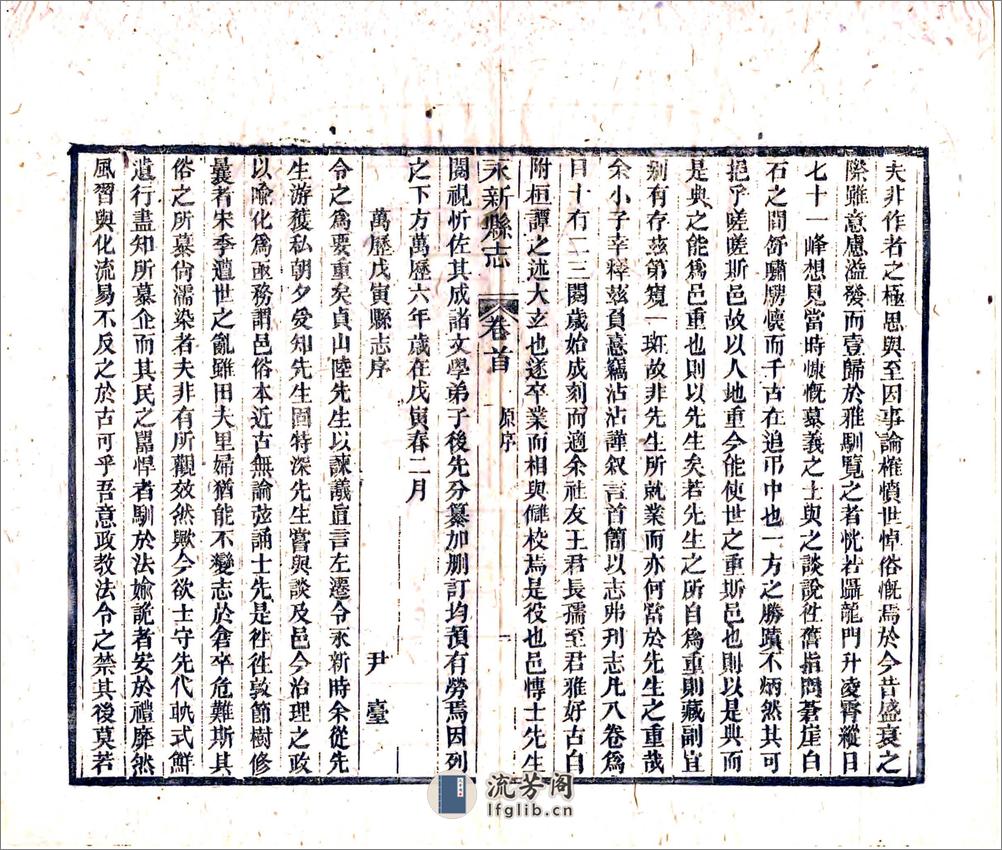 夫非作者之極思與至因事論榷憤世悼俗慨焉於今昔盛衰之
際雖意慮溢發而壹歸於雅馴覽之者恍若躡龍門升凌霄縱目
七十一峰想見當時慷慨慕義之士與之談說徃舊指問蒼崖白
石之間舒嘯騁懷而千古在追弔中也一方之勝蹟不炳然其可
挹乎嗟嗟斯邑故以人地重今能使世之重斯邑也則以是典而
是典之能爲邑重也則以先生矣若先生之所自爲重則藏副宜
剏有存茲第窺一斑故非先生所就業而亦何當於先生之重哉
余小子幸釋茲負意竊沾沾謹叙言首簡以志弗刋志凡八卷爲
目十有二三閱歲始成刻而適余社友王君長孺至君雅好古白
附桓譚之述大玄也遂卒業而相與讎校焉是役也邑愽士先生
永新縣志
卷首
原序
閱視忻佐其成諸文學弟子後先分纂加删訂均預有勞焉因列
之下方萬歷六年歲在戊寅春二月
萬歷戊寅縣志序
尹臺
令之爲要重矣貞山陸先生以諫議直言左遷令永新時余從先
生游獲私朝夕爱知先生固特深先生嘗與談及邑今治理之政
以喻化爲亟務謂邑俗本近古無論弦誦士先是徃徃敦節樹修
曩者宋季遭世之亂雖田夫里婦猶能不變志於倉卒危難斯其
俗之所慕尚濡染者夫非有所觀效然歟今欲士守先代軌式鮮
遺行盡知所慕企而其民之嚚悍者馴於法媮詭者安於禮靡然
風習與化流易不反之於古可乎吾意政教法令之禁其後莫若
流芳阁
lfglib.cn